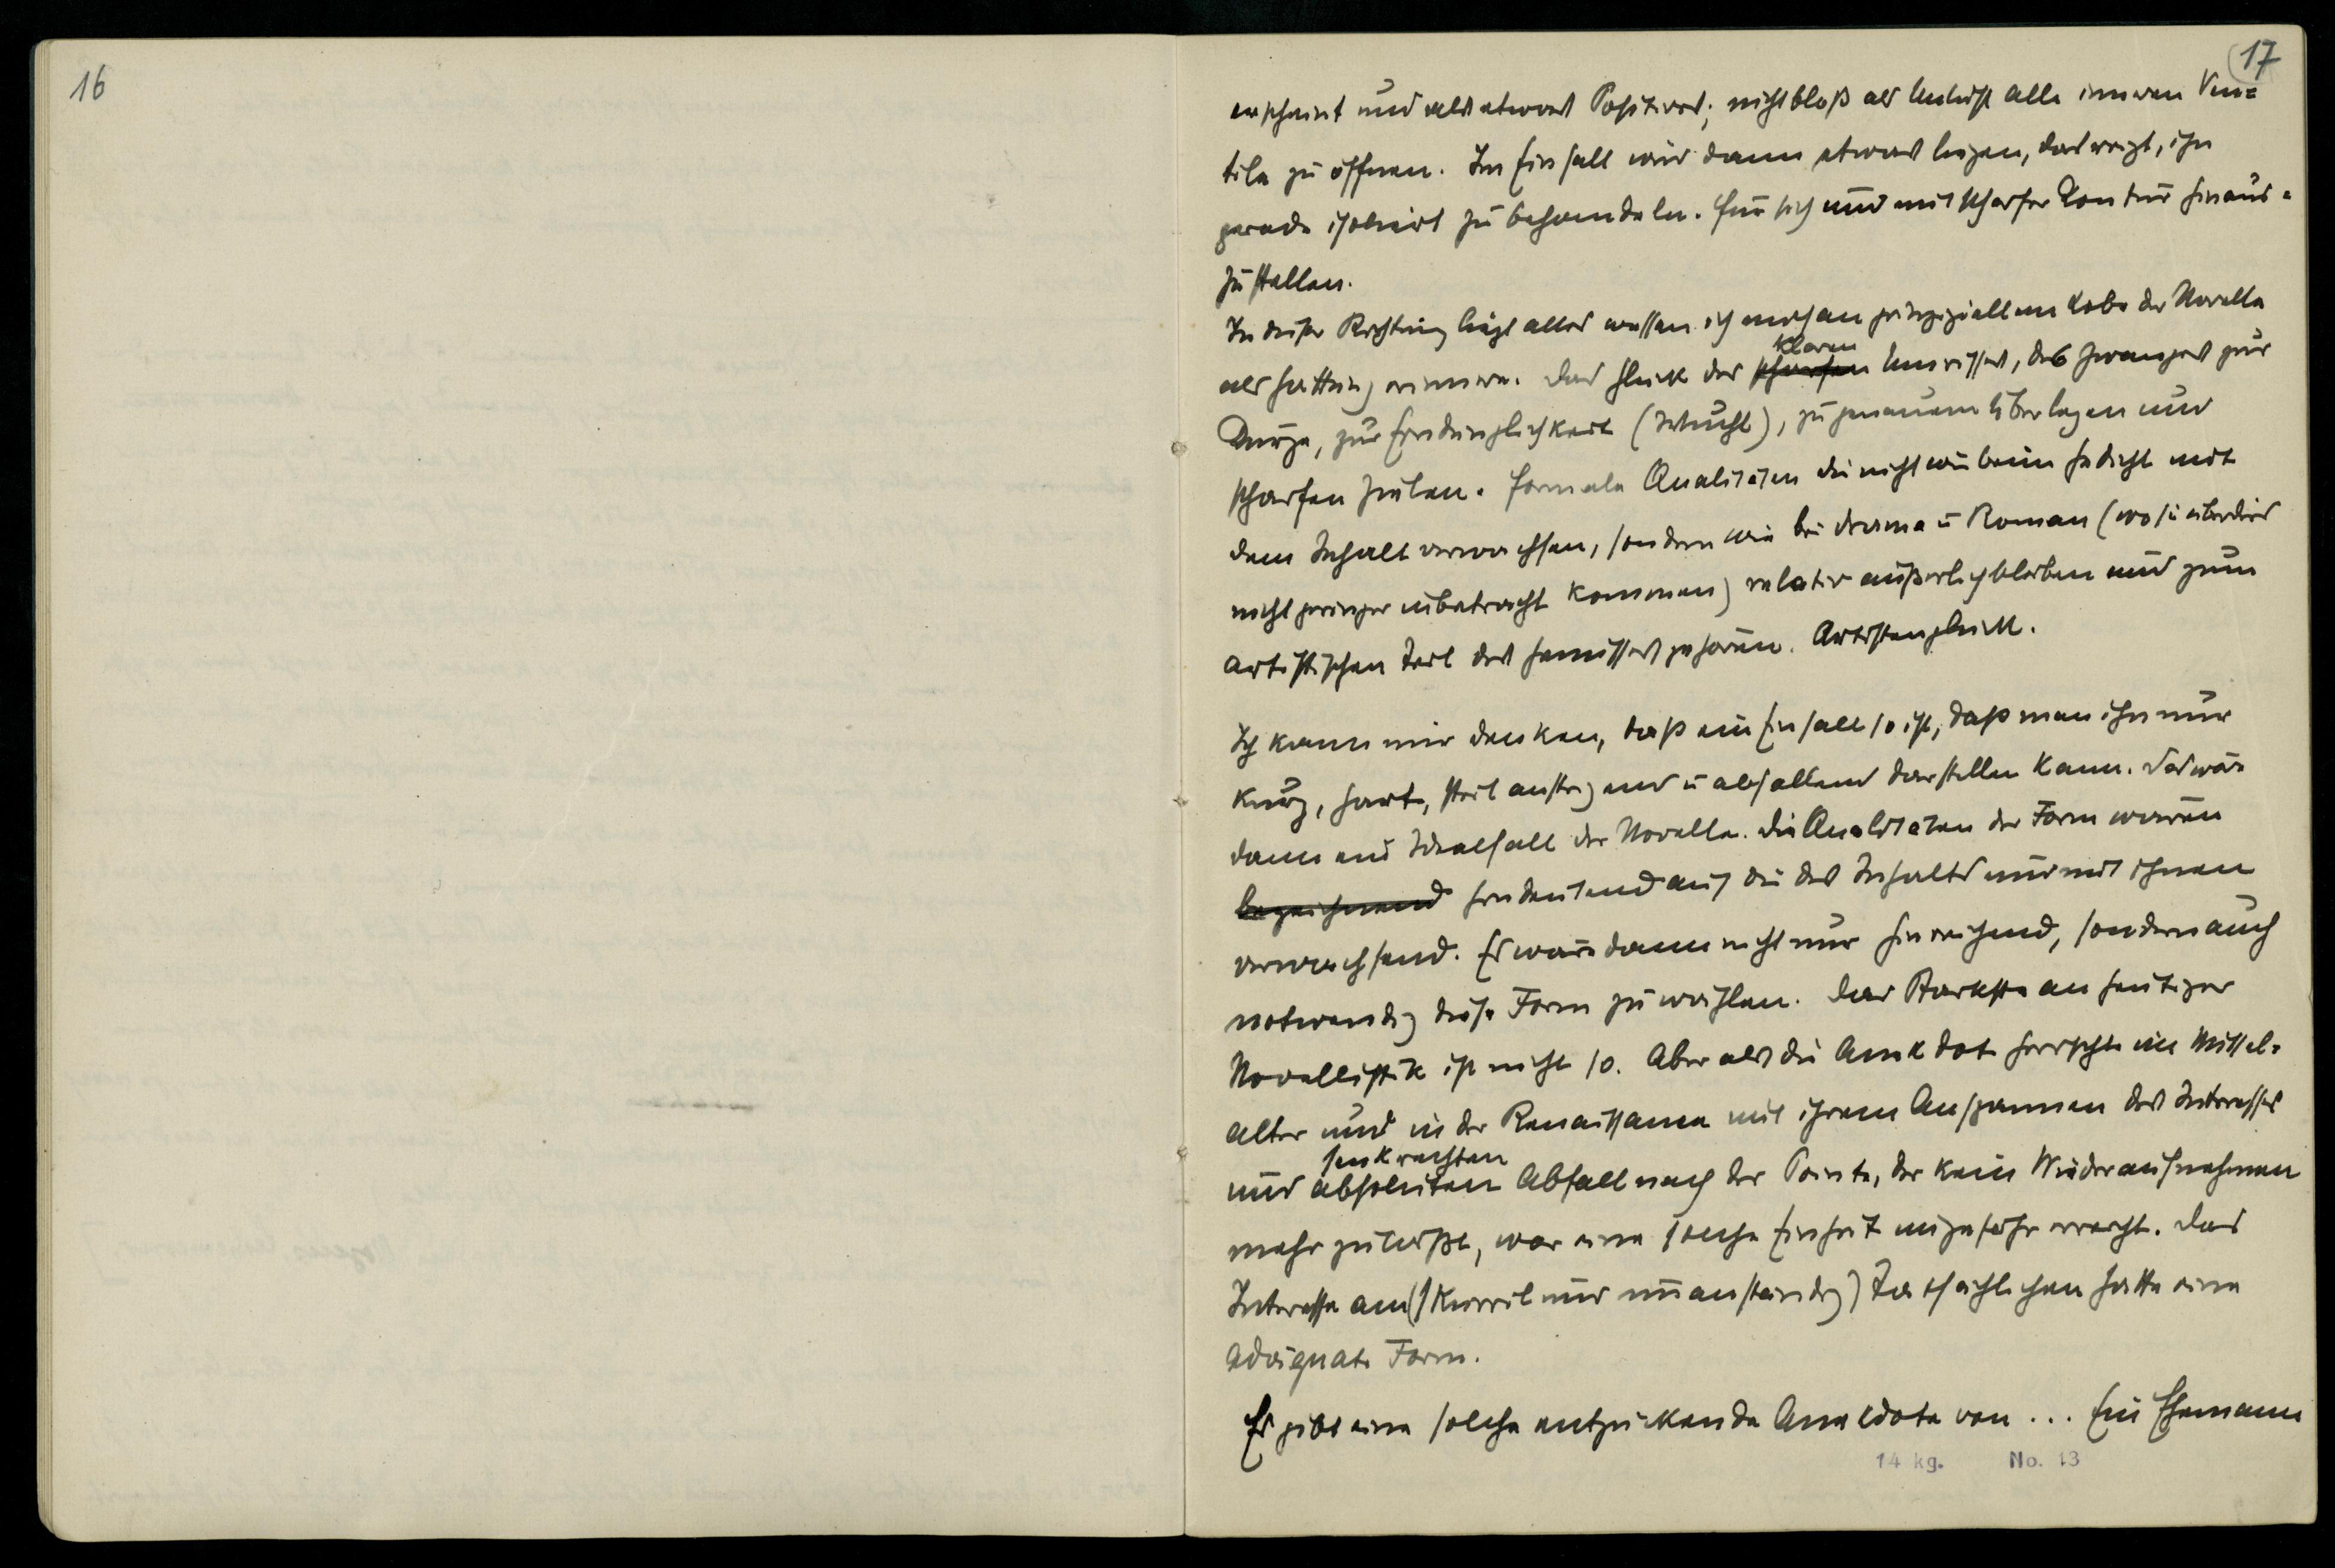 16
17
erscheint und als etwas Positives; nicht bloß als Anlaß alle inneren Ven=
tile zu öffnen. Im Einfall wird dann etwas liegen, das reizt, ihn
gerade isoliert zu behandeln. Für sich und mit scharfer Kontur hinaus=
zustellen.
In dieser Richtung liegt alles wessen ich mich an prinzipiellem Lobe der Novelle
als Gattung erinnere. Das Glück des scharfen klaren Umrisses, des Zwanges zur
Kürze, zur Eindringlichkeit (Wucht), zu genauem Überlegen und
scharfen Zielen. Formale Qualitäten die nicht wie beim Gedicht mit
dem Inhalt verwachsen, sondern wie bei Drama u Roman (wo sie überdies
nicht geringer inbetracht kommen) relativ äußerlich bleiben und zum
artistischen Teil des Genusses gehören. Artistenglück.
Ich kann mir denken, daß ein Einfall so ist, daß man ihn nur
kurz, hart, steil ansteigend u abfallend darstellen kann. Das wäre
dann ein Idealfall der Novelle. Die Qualitäten der Form wären
bezeichnend hindeutend auf die des Inhalts und mit ihnen
verwachsend. Es wäre dann nicht nur hinreichend, sondern auch
notwendig diese Form zu wählen. Das Stärkste an heutiger
Novellistik ist nicht so. Aber als die Anekdote herrschte im Mittel=
alter und in der Renaissance mit ihrem Anspannen des Interesses
und absoluten senkrechten Abfall nach der Pointe, der kein Wiederaufnehmen
mehr zuließe, war eine solche Einheit ungefähr erreicht. Das
Interesse am (skurril und unanständig) Tatsächlichen hatte eine
adäquate Form.
Es gibt eine solche entzückende Anekdote von ... Ein Ehemann
14 kg. No. 13